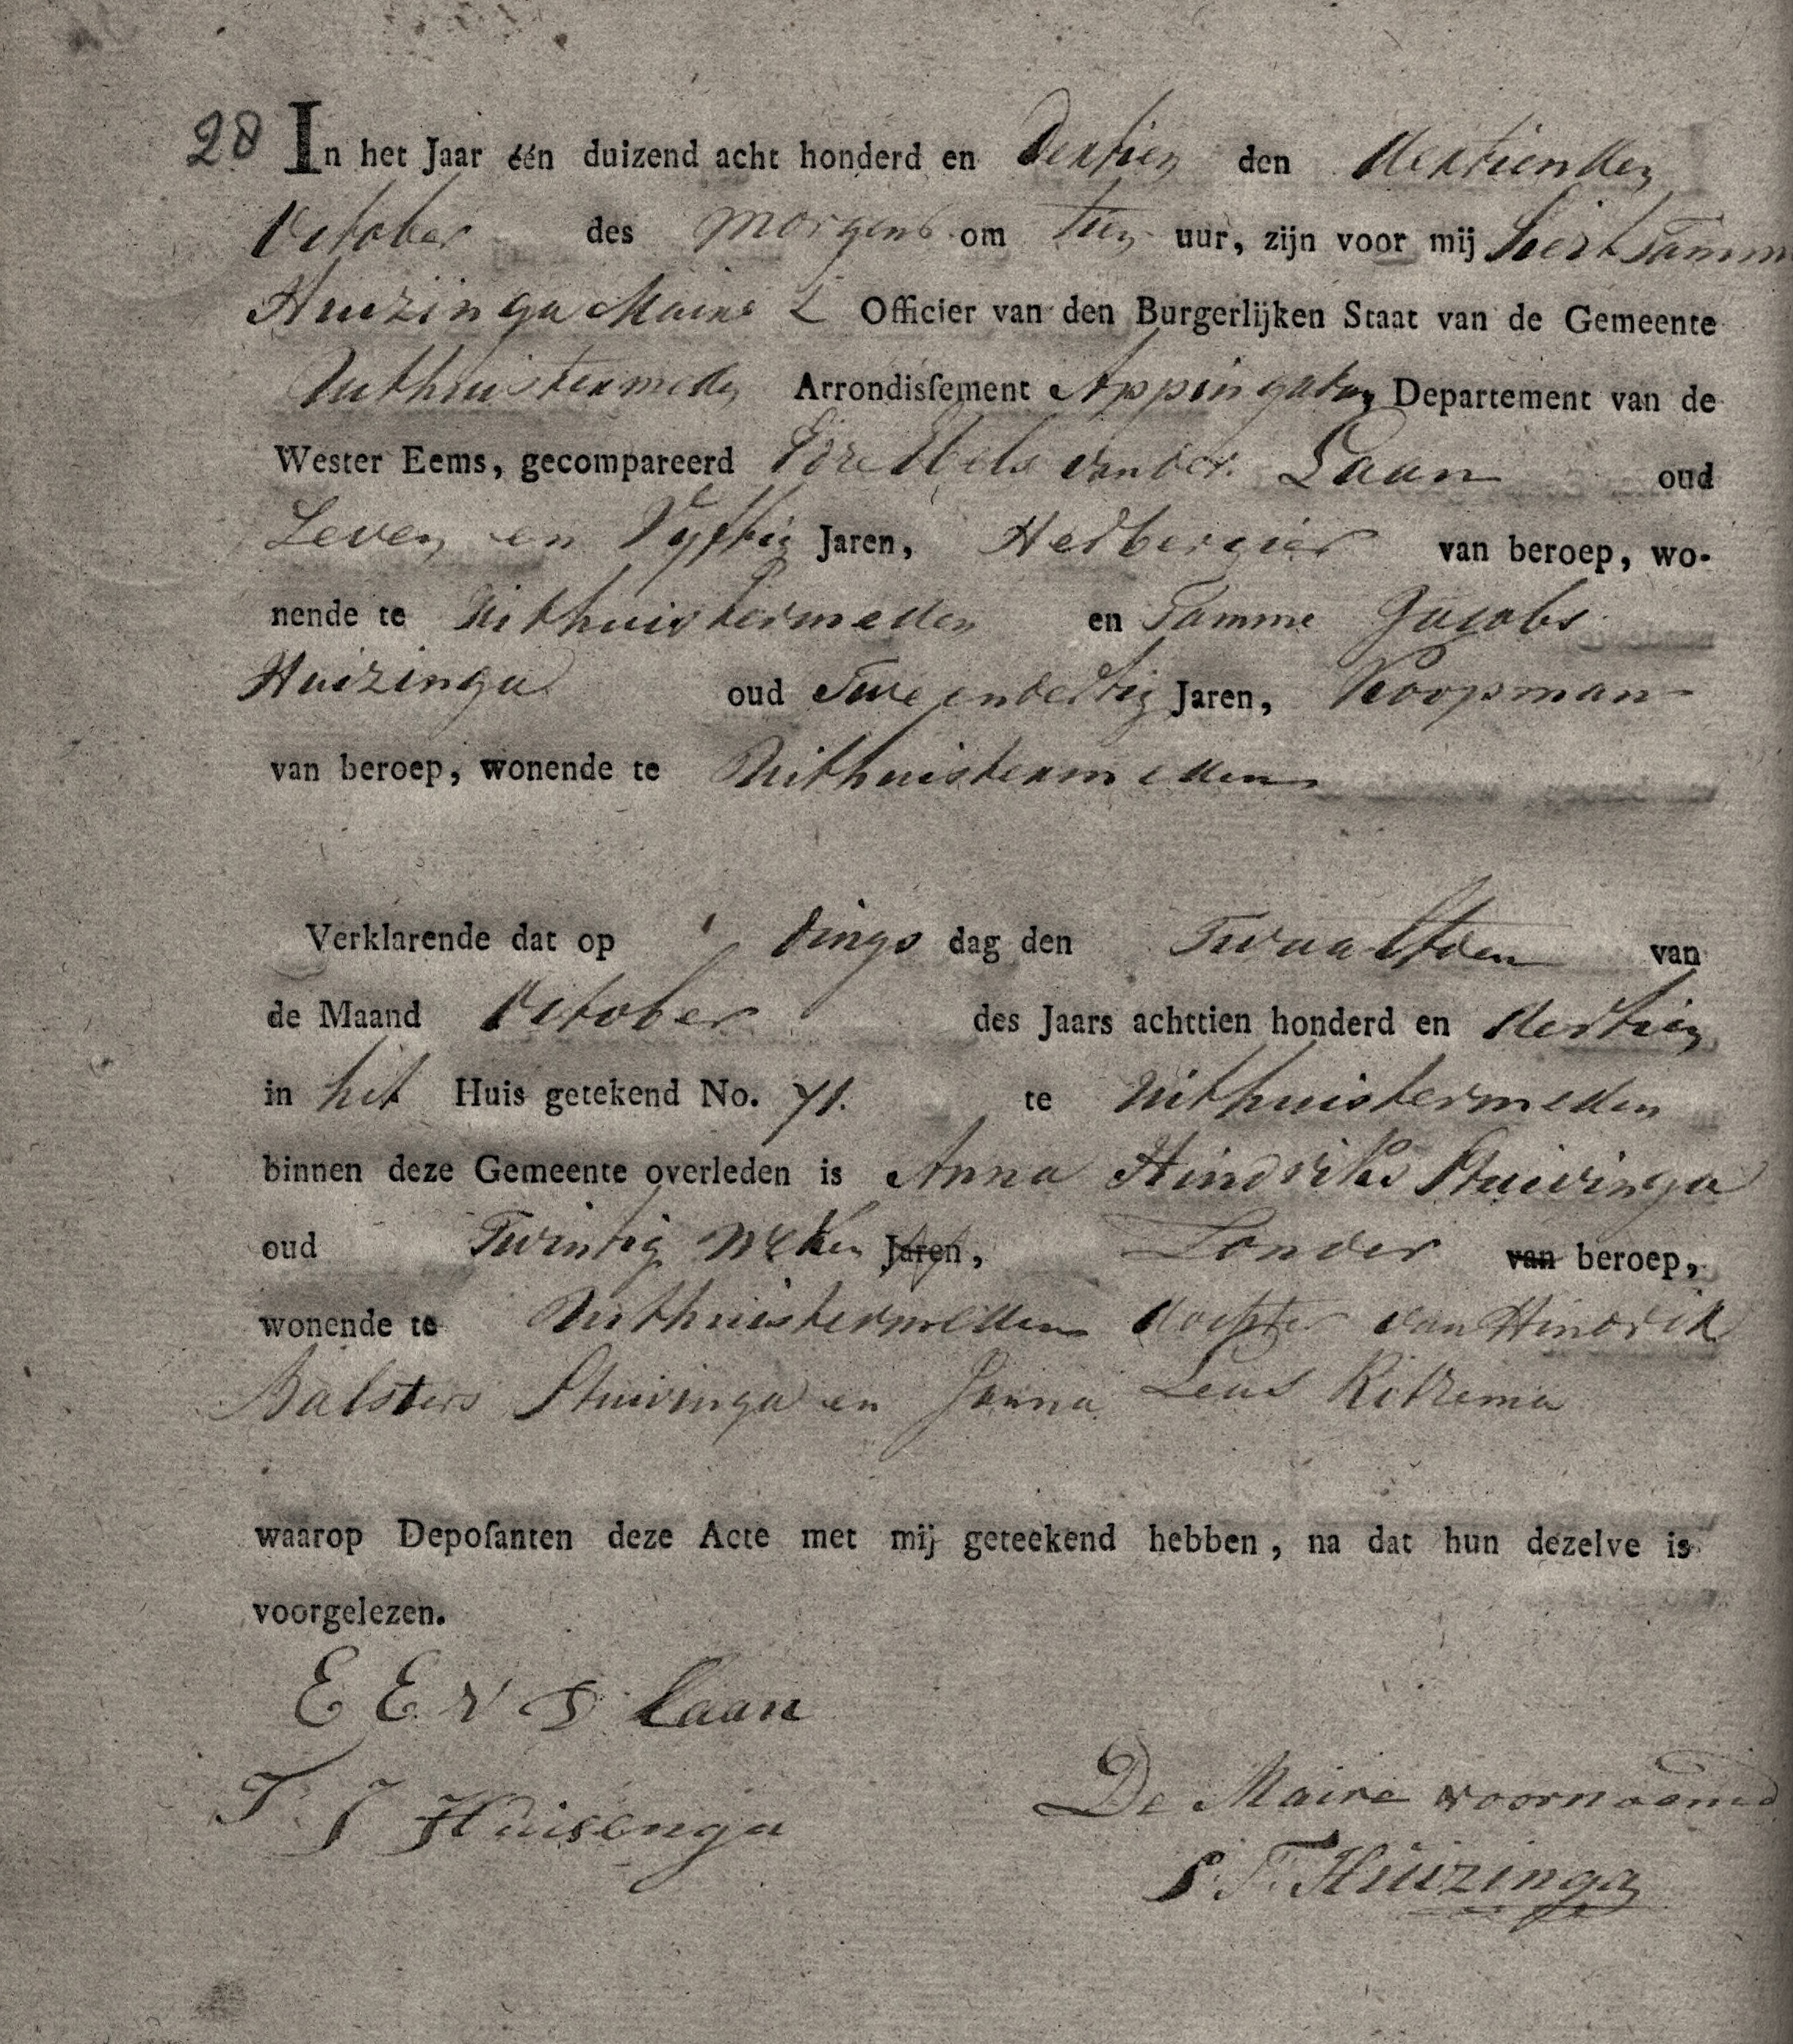 28 In het Jaar één duizend acht honderd en Dertien den dertienden
October des morgens om tien uur, zijn voor mij
Huizinga Maire Officier van den Burgerlijken Staat van de Gemeente
Uithuistermeden Arrondisſement Appingadam Departement van de
Wester Eems, gecompareerd Ebels van der Laan oud
Zeven en Vyftig Jaren, Herbergier van beroep, wo-
nende te Uithuistermeden en Tamme Jacobs
Huizinga oud Twe endertig Jaren, Koopman
van beroep, wonende te Uithuistermeden
Verklarende dat op dings dag den Twaalfden van
de Maand October des Jaars achttien honderd en dertien
in het Huis getekend No. 71. te Uithuistermeden
binnen deze Gemeente overleden is Anna Hindriks Stuivinga
oud Twintig weken Jaren, Zonder van beroep,
wonende te Uithuistermeden dochter van Hindrik
Balsters Stuivinga en Janna Leus Ritzema
waarop Depoſanten deze Acte met mij geteekend hebben, na dat hun dezelve is
voorgelezen.
E E v d Laan
T. J Huisenga
De Maire voornoemd
S. T. Huizinga